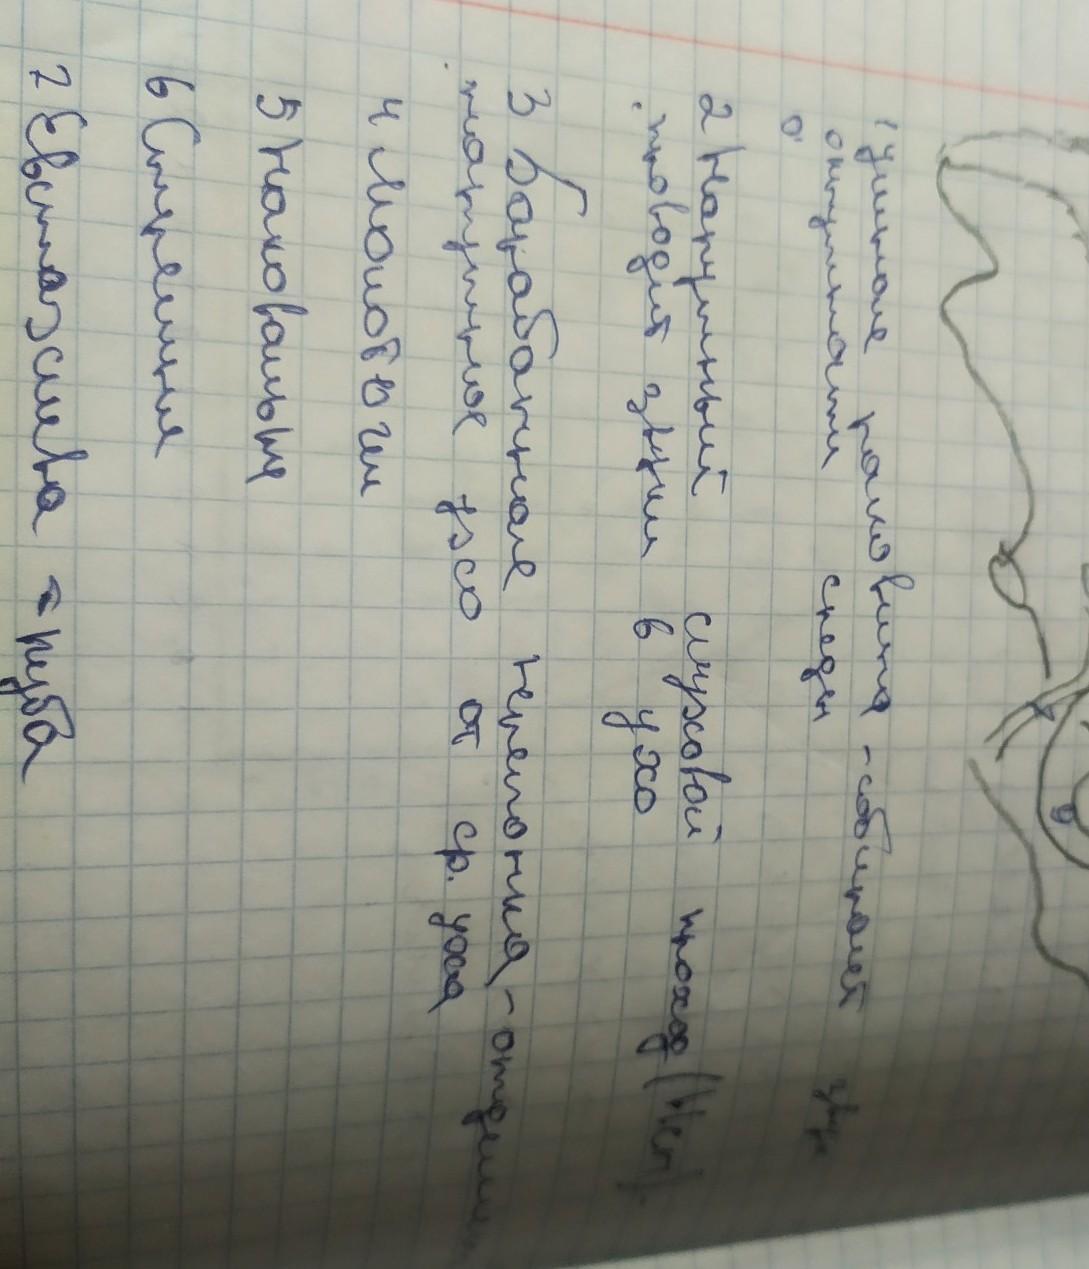 1 ушная раковина - собирает звук
2 Наружный слуховой проход (
проводит звук в ухо
3 барабанная перепонка - отделя
наружное ухо от ср. уха
4 Молоточек
5 Наковальня
6 Стремечко
7 Евстахиева труба